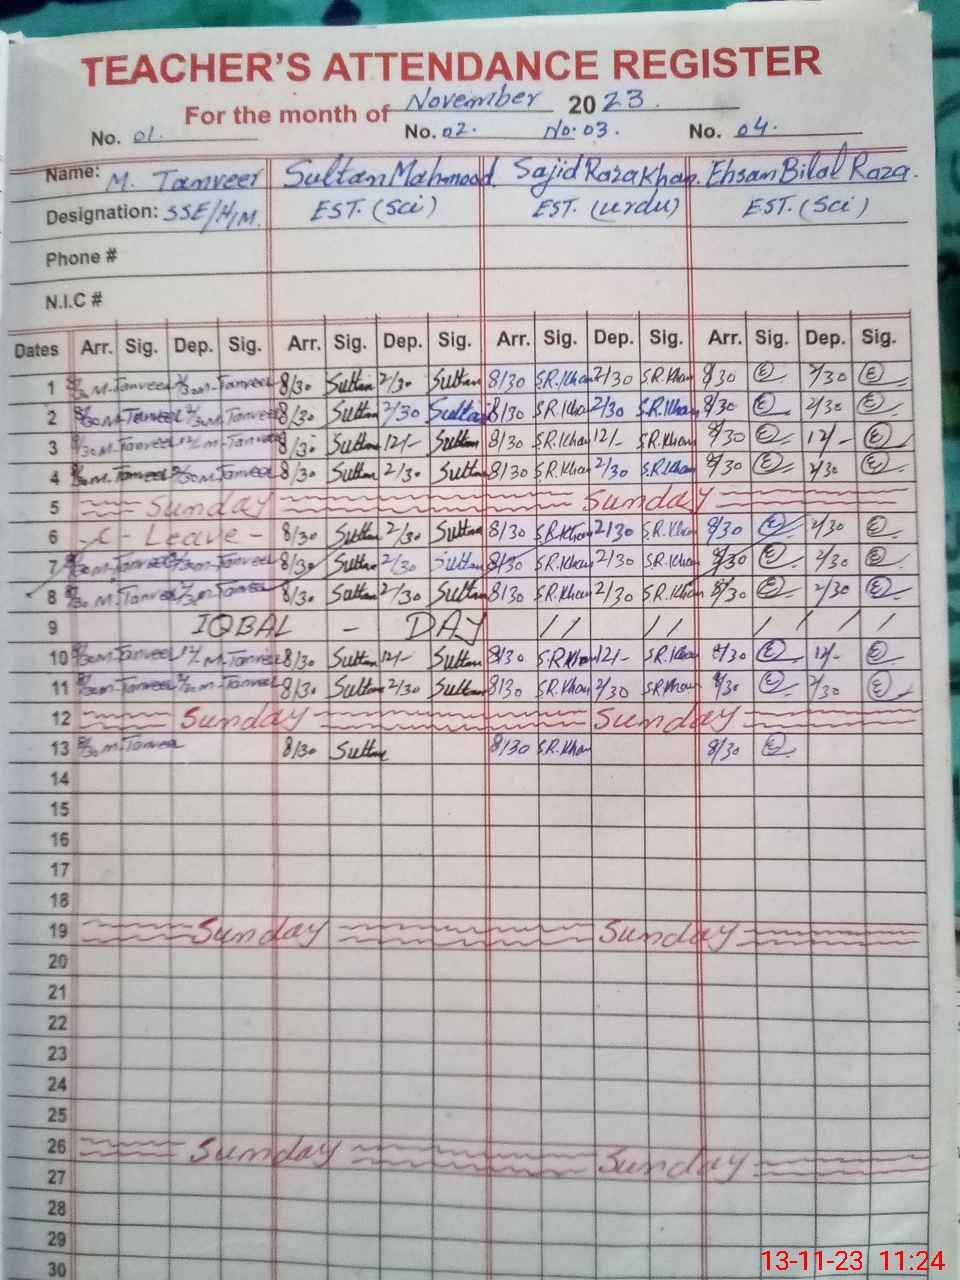 TEACHER'S ATTENDANCE REGISTER
For the month of November 2023.
No. 01. No. 02. No. 03. No. 04.
Name: M. Tanveer Sultan Mahmood. Sajid Raza Khan. Ehsan Bilal Raza.
Designation: SSE/H/M. EST. (Sci) EST. (urdu) EST. (Sci)
Phone #
N.I.C #
Dates Arr. Sig. Dep. Sig. Arr. Sig. Dep. Sig. Arr. Sig. Dep. Sig. Arr. Sig. Dep. Sig.
1 8/30 M.Tanveer 2/30 M.Tanveer 8/30 Sultan 2/30 Sultan 8/30 S.R.Khan 2/30 S.R.Khan 8/30 E 2/30 E
2 8/30 M.Tanveer 2/30 M.Tanveer 8/30 Sultan 2/30 Sultan 8/30 S.R.Khan 2/30 S.R.Khan 8/30 E 2/30 E
3 8/30 M.Tanveer 12/- M.Tanveer 8/30 Sultan 12/- Sultan 8/30 S.R.Khan 12/- S.R.Khan 8/30 E 12/- E
4 8/30 M.Tanveer 2/30 M.Tanveer 8/30 Sultan 2/30 Sultan 8/30 S.R.Khan 2/30 S.R.Khan 8/30 E 2/30 E
5 Sunday Sunday
6 - C - Leave - 8/30 Sultan 2/30 Sultan 8/30 S.R.Khan 2/30 S.R.Khan 8/30 E 2/30 E
7 8/30 M.Tanveer 2/30 M.Tanveer 8/30 Sultan 2/30 Sultan 8/30 S.R.Khan 2/30 S.R.Khan 8/30 E 2/30 E
8 8/30 M.Tanveer 2/30 M.Tanveer 8/30 Sultan 2/30 Sultan 8/30 S.R.Khan 2/30 S.R.Khan 8/30 E 2/30 E
9 IQBAL - DAY // // / / / /
10 8/30 M.Tanveer 12/- M.Tanveer 8/30 Sultan 12/- Sultan 8/30 S.R.Khan 12/- S.R.Khan 8/30 E 12/- E
11 8/30 M.Tanveer 2/30 M.Tanveer 8/30 Sultan 2/30 Sultan 8/30 S.R.Khan 2/30 S.R.Khan 8/30 E 2/30 E
12 Sunday Sunday
13 8/30 M.Tanveer 8/30 Sultan 8/30 S.R.Khan 8/30 E
14
15
16
17
18
19 Sunday Sunday
20
21
22
23
24
25
26 Sunday Sunday
27
28
29
30
13-11-23 11:24